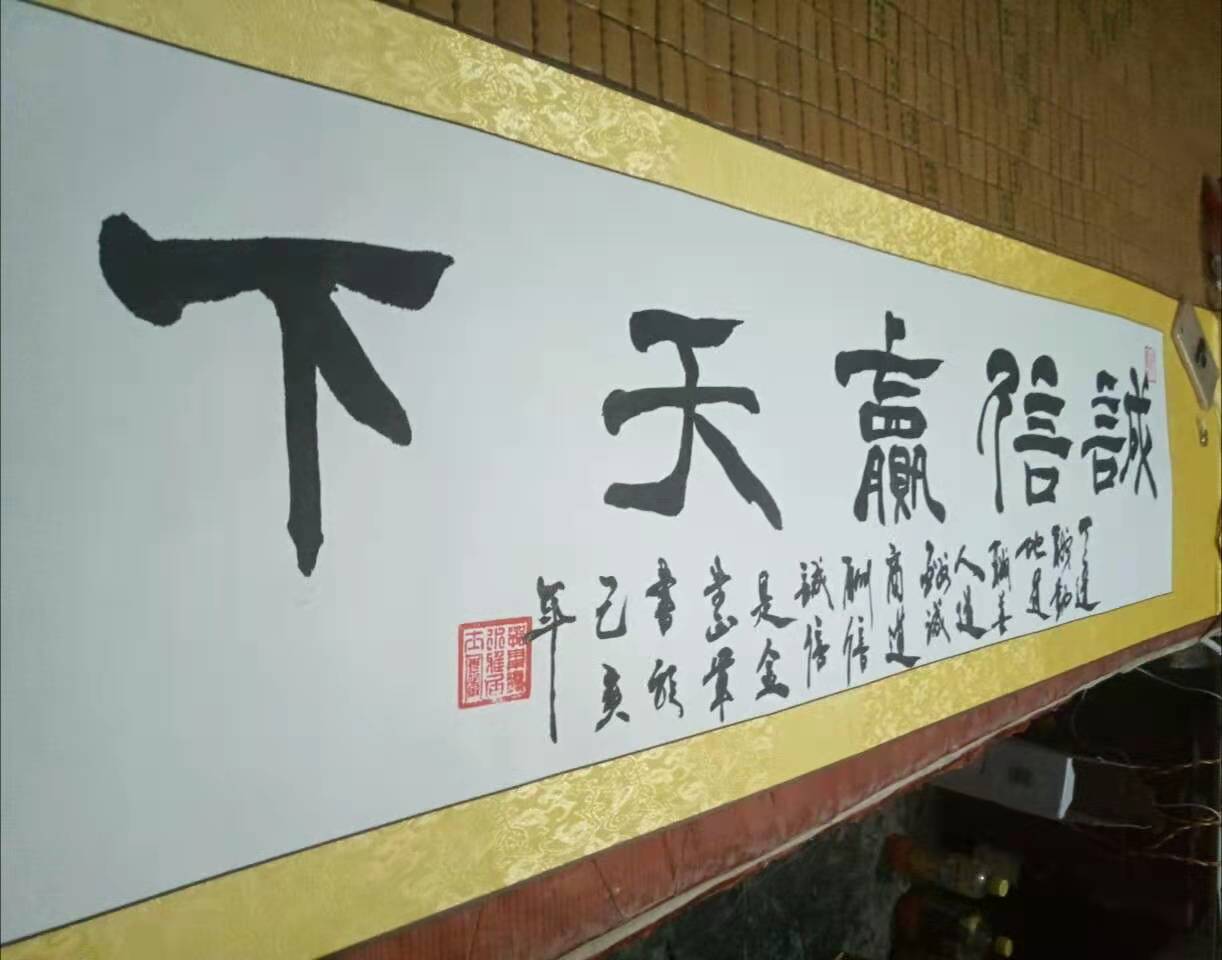 誠信贏天下
天道
酬勤
地道
酬善
人道
酬誠
商道
酬信
誠信
是金
書於
己亥
年